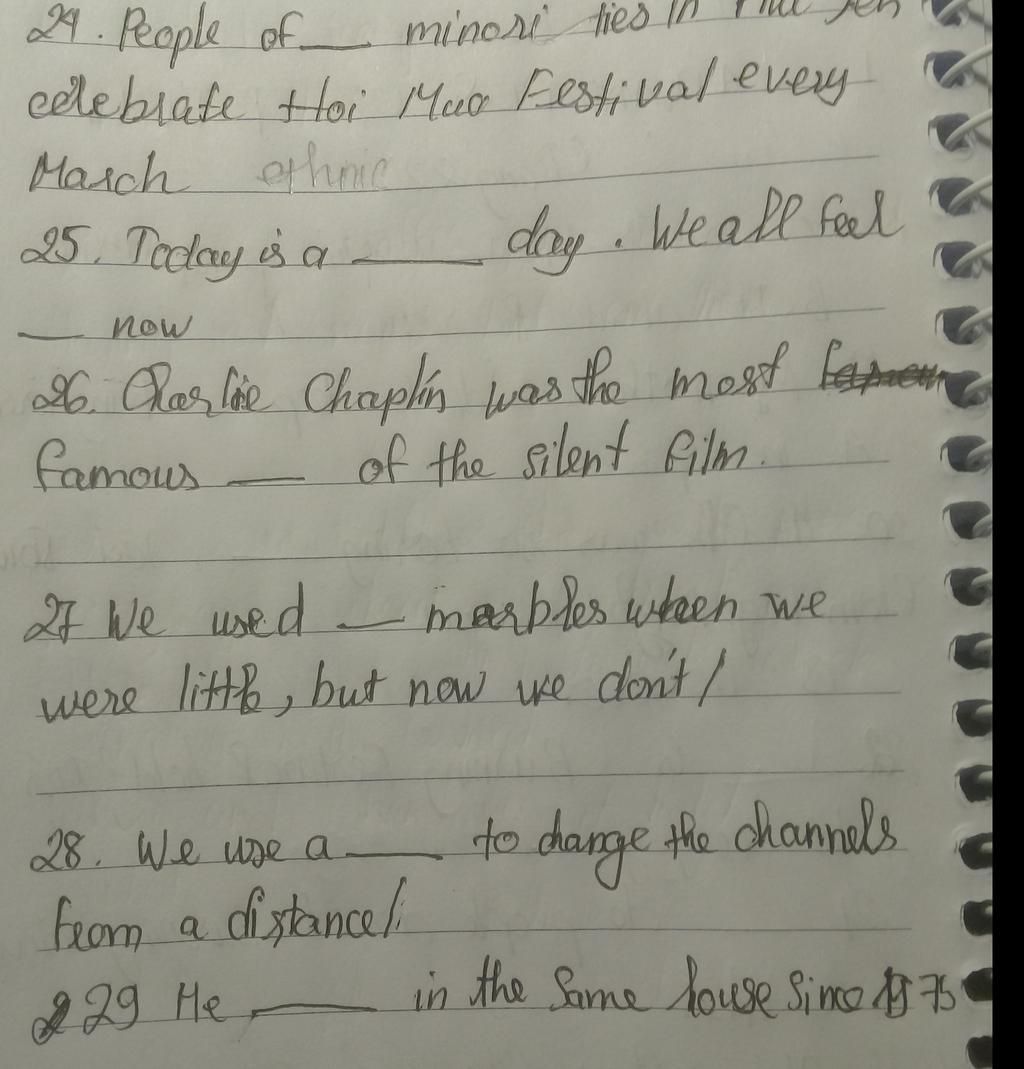 24. People of ___ minori ties in Phu Yen
celebrate Hoi Mua Festival every
March ethnic
25. Today is a ___ day. We all feel
___ now
26. Charlie Chaplin was the most
famous ___ of the silent film.
27 We used ___ marbles when we
were little, but now we don't/
28. We use a ___ to change the channels
from a distance/.
29 He ___ in the same house since 1975